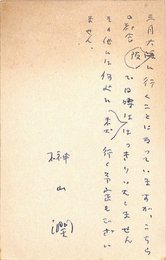 三月大阪に行くことになっていますが、こちら
の都合で時はっきりいたしません
その他には何処も行く予定もござい
ません。
神山潤